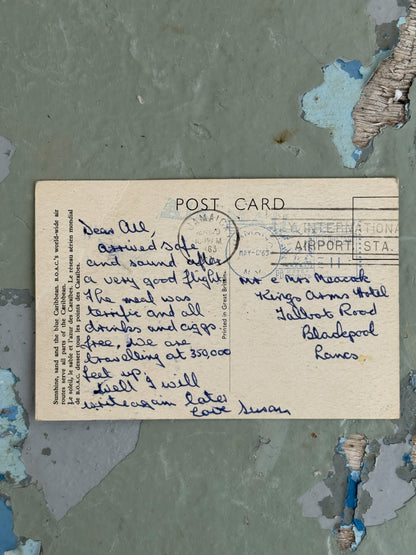 POST CARD
Dear All,
arrived safe
and sound after
a very good flight.
The meal was
terrific and all
drinks and ciggs
free, we are
travelling at 350,000
feet up,
Well I will
write again later
love Susan
Mr & Mrs Meacock
Kings Arms Hotel
Talbot Road
Blackpool
Lancs
JAMAICA
63
MAY
INTERNATIONAL
AIRPORT, STA.
Printed in Great Britain
Sunshine, sand and the blue Caribbean. B.O.A.C.'s world-wide air
routes serve all parts of the Caribbean.
Le soleil, le sable et l'azur des Caraïbes. Le réseau aérien mondial
de B.O.A.C. dessert tous les points des Caraïbes.